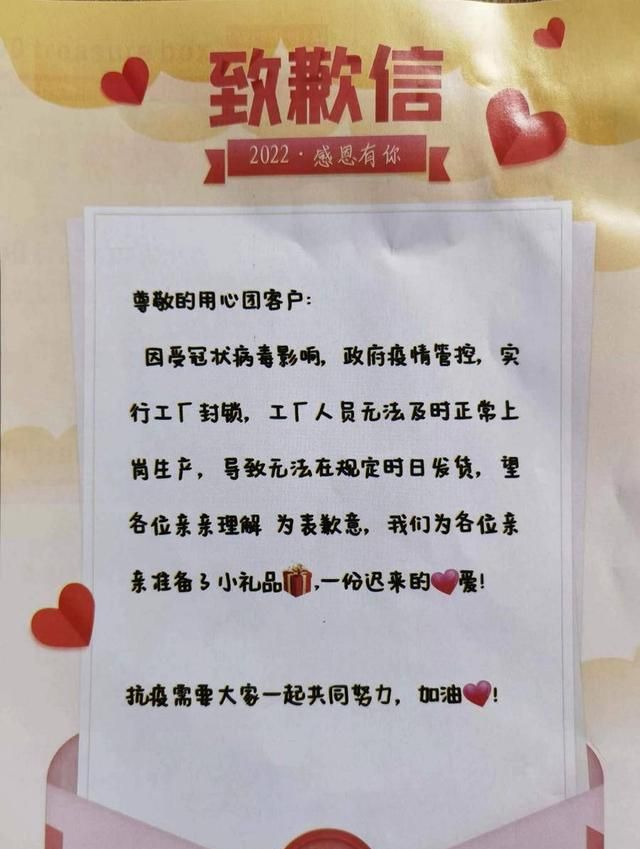 致歉信
2022·感恩有你
尊敬的用心团客户：
因受冠状病毒影响，政府疫情管控，实
行工厂封锁，工厂人员无法及时正常上
岗生产，导致无法在规定时日发货，望
各位亲亲理解 为表歉意，我们为各位亲
亲准备了小礼品🎁，一份迟来的💗爱！
抗疫需要大家一起共同努力，加油💗！